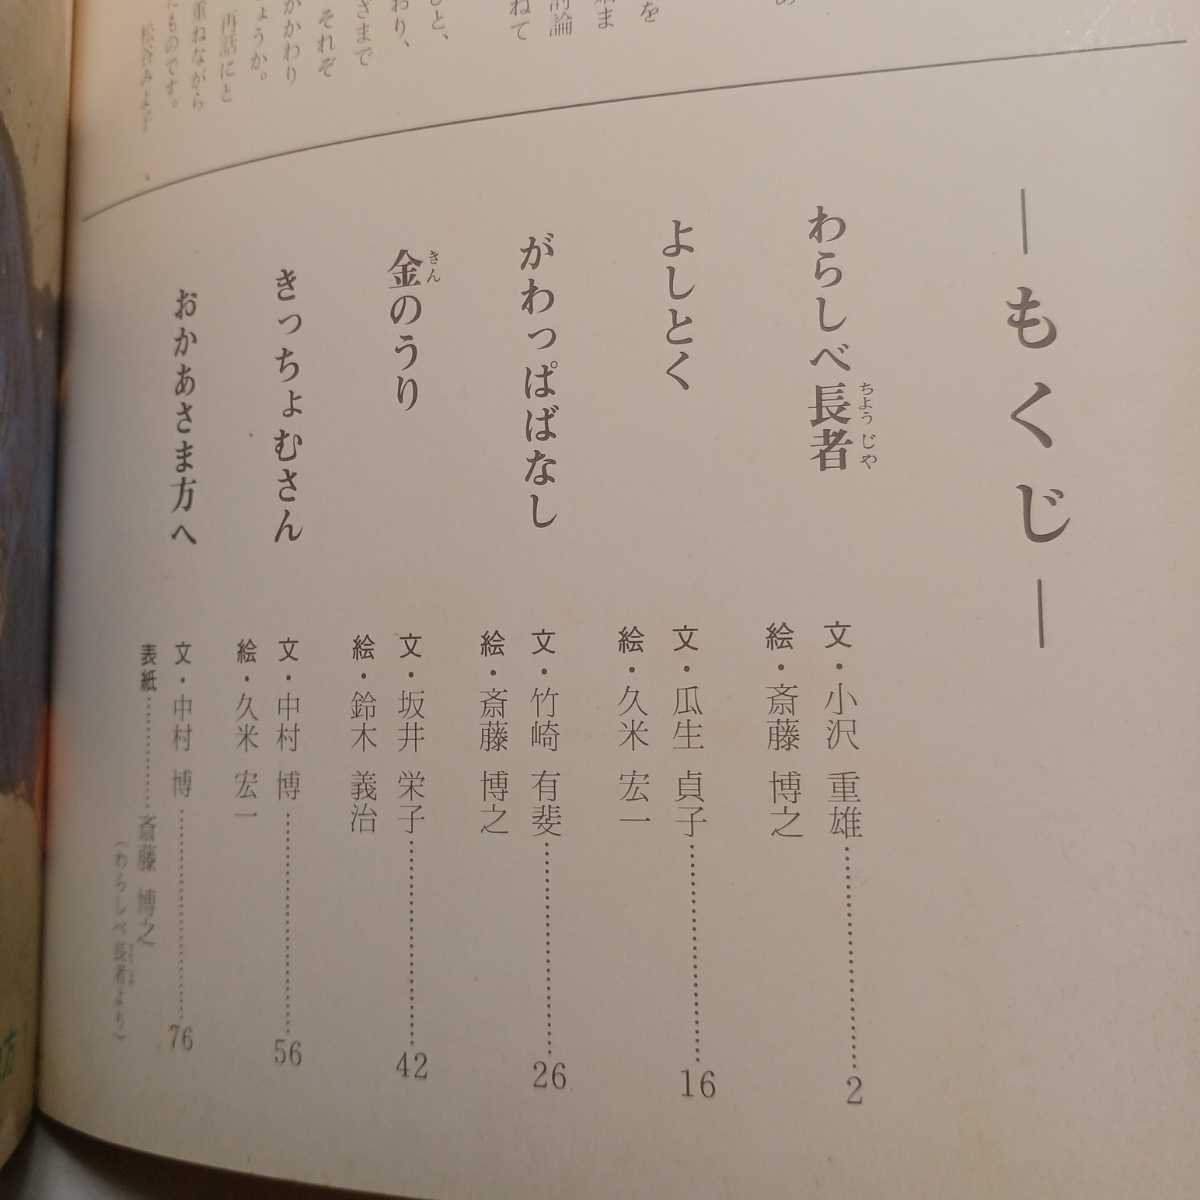 討論
ねて
ざまで
それぞ
かかわり
ょうか。
再話にと
重ねながら
たものです。
松谷みよ子
―もくじ―
わらしべ長者
ちようじや
文・小沢 重雄
絵・斎藤 博之
2
よしとく
文・瓜生 貞子
絵・久米 宏一
16
がわっぱばなし
文・竹崎 有斐
絵・斎藤 博之
26
金のうり
きん
文・坂井 栄子
絵・鈴木 義治
42
きっちょむさん
文・中村 博
絵・久米 宏一
56
おかあさま方へ
文・中村 博
76
表紙……………斎藤 博之
(わらしべ長者より)